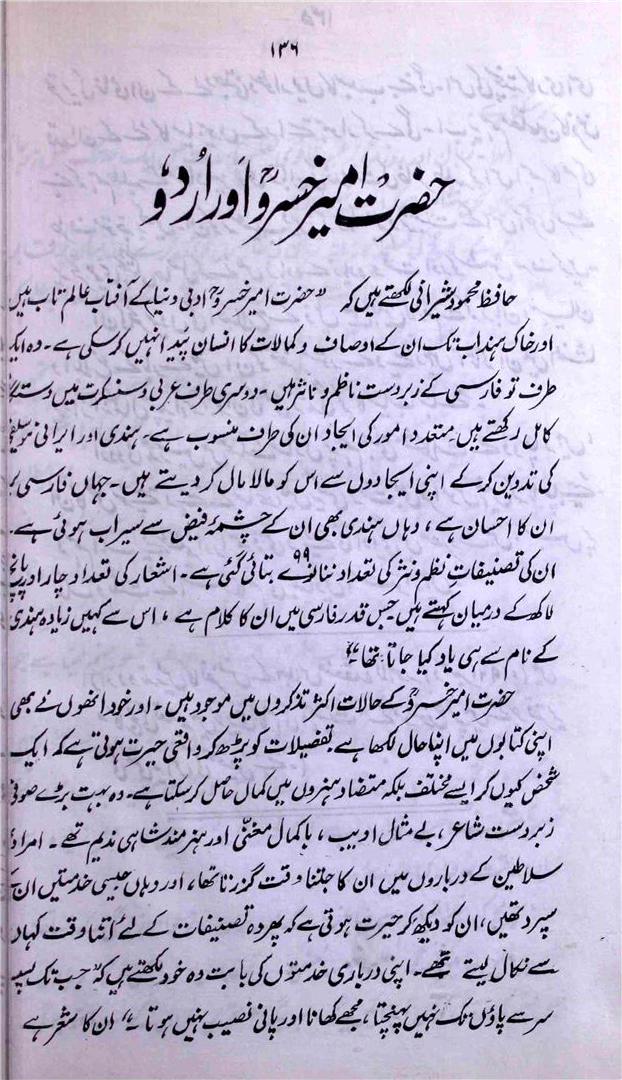 ۱۳۶
حضرت امیر خسروؒ اور اُردو
حافظ محمود شیرانی لکھتے ہیں کہ "حضرت امیر خسروؒ ادبی دنیا کے آفتاب عالم تاب ہیں
اور خاک ہند اب تک ان کے اوصاف و کمالات کا انسان پیدا نہیں کر سکی ہے۔ وہ ایک
طرف تو فارسی کے زبردست ناظم و ناثر ہیں۔ دوسری طرف عربی و سنسکرت میں
کامل رکھتے ہیں۔ متعدد امور کی ایجاد ان کی طرف منسوب ہے۔ ہندی اور ایرانی موسیقی
کی تدوین کرکے اپنی ایجادوں سے اس کو مالا مال کر دیتے ہیں۔ جہاں فارسی پر
ان کا احسان ہے، وہاں ہندی بھی ان کے چشمۂ فیض سے سیراب ہوئی ہے۔
ان کی تصنیفاتِ نظم و نثر کی تعداد ننانوے ۹۹ بتائی گئی ہے۔ اشعار کی تعداد چار اور پانچ
لاکھ کے درمیان کہتے ہیں جس قدر فارسی میں ان کا کلام ہے، اس سے کہیں زیادہ ہندی
کے نام سے ہی یاد کیا جاتا تھا"
حضرت امیر خسروؒ کے حالات اکثر تذکروں میں موجود ہیں۔ اور خود انھوں نے بھی
اپنی کتابوں میں اپنا حال لکھا ہے تفصیلات کو پڑھ کر واقعی حیرت ہوتی ہے کہ ایک
شخص کیوں کر ایسے مختلف بلکہ متضاد ہنروں میں کمال حاصل کر سکتا ہے۔ وہ بہت بڑے صوفی
زبردست شاعر، بے مثال ادیب، باکمال مغنّی اور ہنرمند شاہی ندیم تھے۔ امراء
سلاطین کے درباروں میں ان کا جتنا وقت گزرتا تھا، اور وہاں جیسی خدمتیں ان کے
سپرد تھیں، ان کو دیکھ کر حیرت ہوتی ہے کہ پھر وہ تصنیفات کے لئے اتنا وقت کہاں
سے نکال لیتے تھے۔ اپنی درباری خدمتوں کی بابت وہ خود لکھتے ہیں کہ "جب تک
سر سے پاؤں تک نہیں پہنچتا، مجھے کھانا اور پانی نصیب نہیں ہوتا" ان کا شعر ہے